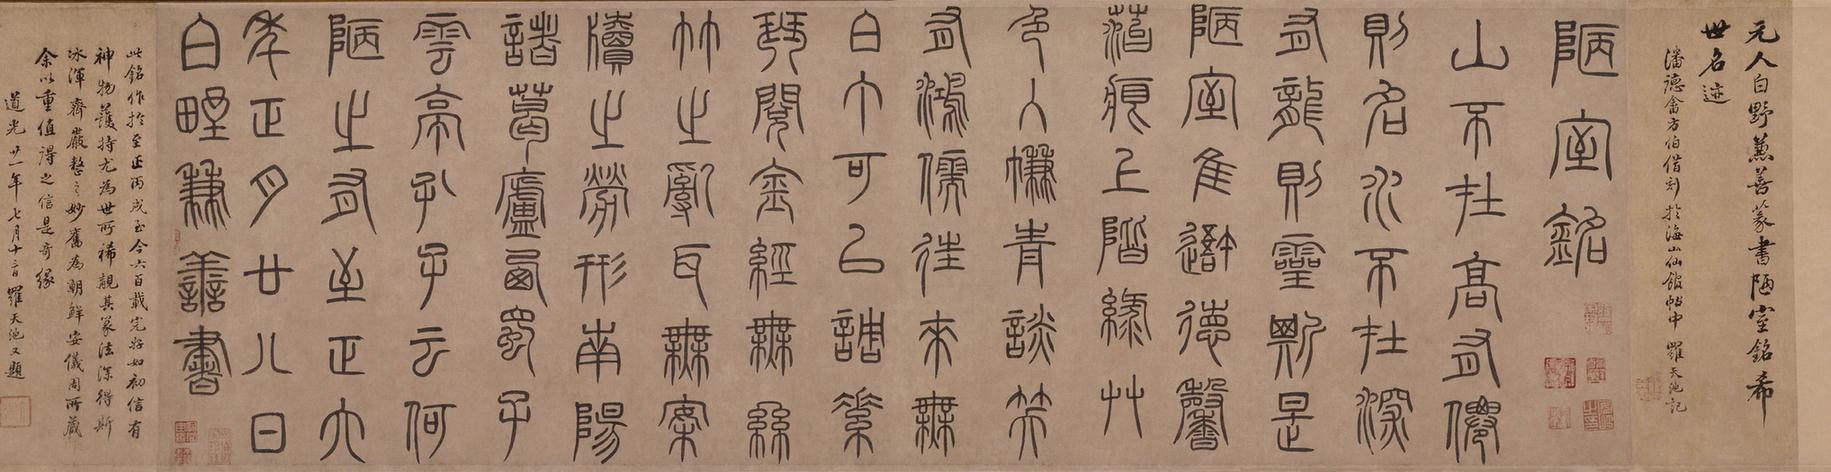 元人白野兼善篆書陋室銘希
世名迹
潘德畬方伯借刻於海山仙館帖中 羅天池記
陋室銘
山不在高有僊
則名水不在深
有龍則靈斯是
陋室隹吾德馨
苔痕上階綠艸
色入㡘青談笑
有鴻儒往來無
白丁可㠯調素
琴閱金經無絲
竹之亂耳無案
牘之勞形南陽
諸葛廬西蜀子
雲亭孔子云何
陋之有至正六
年正月廿八日
白野兼善書
此銘作於至正丙戌至今六百載完好如初信有
神物護持尤為世所稀覯其篆法深得斯
冰渾齊嚴整之妙舊為朝鮮安儀周所藏
余以重值得之信是奇緣
道光廿一年七月十二日羅天池又題